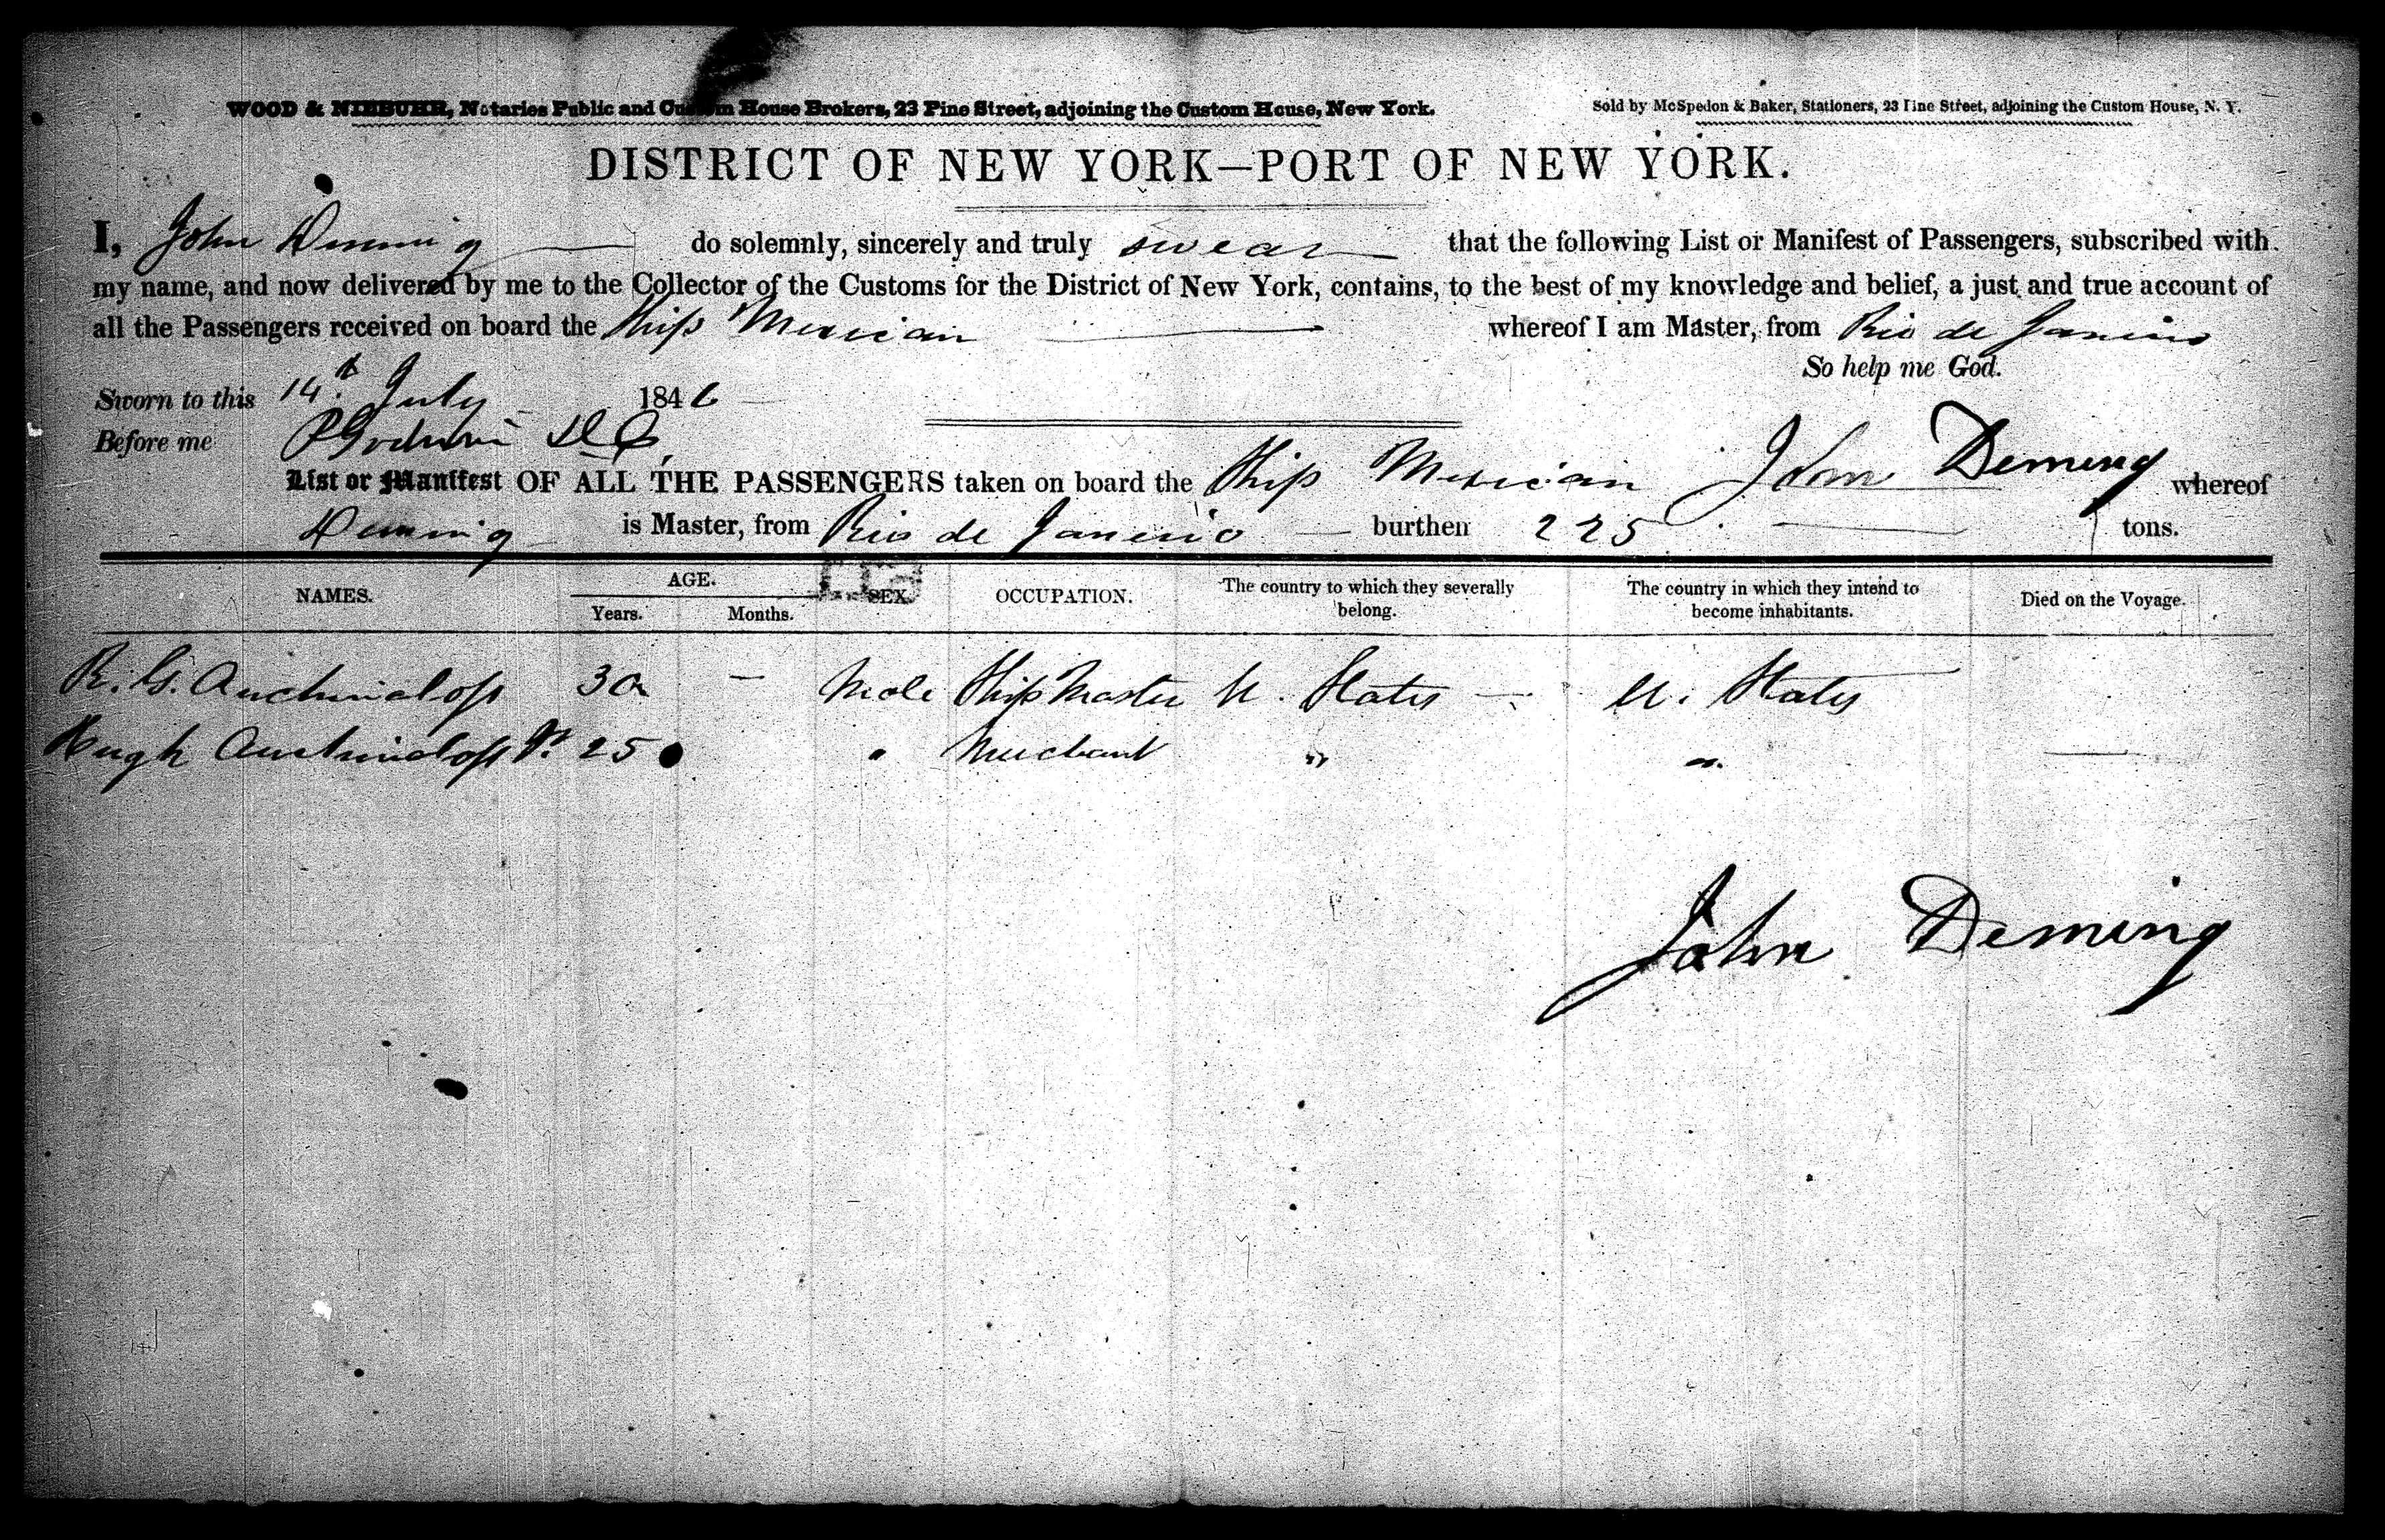 WOOD & NIEBUHR, Notaries Public and Custom House Brokers, 23 Pine Street, adjoining the Custom House, New York.
Sold by McSpedon & Baker, Stationers, 23 Pine Street, adjoining the Custom House, N. Y.
DISTRICT OF NEW YORK—PORT OF NEW YORK.
I, John Deming do solemnly, sincerely and truly swear that the following List or Manifest of Passengers, subscribed with
my name, and now delivered by me to the Collector of the Customs for the District of New York, contains, to the best of my knowledge and belief, a just and true account of
all the Passengers received on board the Ship Mexican whereof I am Master, from Rio de Janeiro
So help me God.
Sworn to this 14th July 1846
Before me
John Deming
List or Manifest OF ALL THE PASSENGERS taken on board the Ship Mexican whereof
Deming is Master, from Rio de Janeiro burthen 225 tons.
NAMES. AGE. SEX. OCCUPATION. The country to which they severally belong. The country in which they intend to become inhabitants. Died on the Voyage.
Years. Months.
R. G. Auchincloss 30 - Male Ship Master U. States U. States
Hugh Auchincloss Jr. 25 " Merchant " " —
John Deming